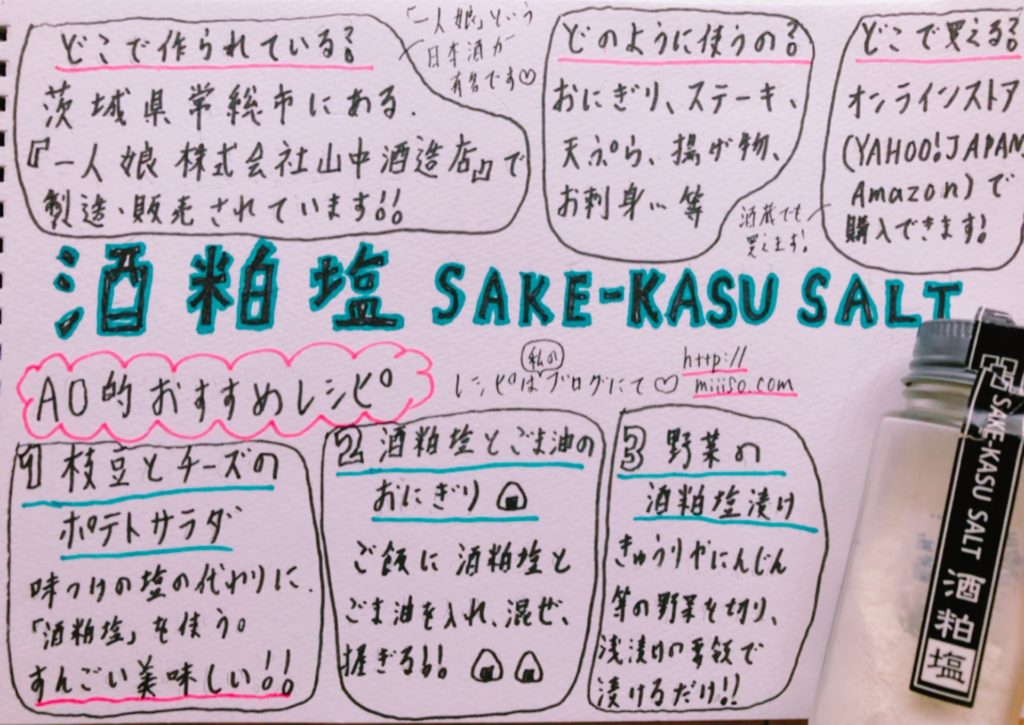 どこで作られている?
茨城県常総市にある、
『一人娘 株式会社山中酒造店』で
製造・販売されています!!
「一人娘」という
日本酒が
有名です♡
どのように使うの?
おにぎり、ステーキ、
天ぷら、揚げ物、
お刺身… 等
どこで買える?
オンラインストア
(YAHOO!JAPAN
Amazon)で
購入できます!
酒蔵でも
買えます!
酒粕塩 SAKE-KASU SALT
AO的おすすめレシピ
レシピは私のブログにて♡
http://
miiiso.com
1 枝豆とチーズの
ポテトサラダ
味つけの塩の代わりに、
「酒粕塩」を使う。
すんごい美味しい!!
2 酒粕塩とごま油の
おにぎり
ご飯に酒粕塩と
ごま油を入れ、混ぜ、
握ぎる!!
3 野菜の
酒粕塩漬け
きゅうりやにんじん
等の野菜を切り、
浅漬けの要領で
漬けるだけ!!
SAKE-KASU SALT 酒粕塩